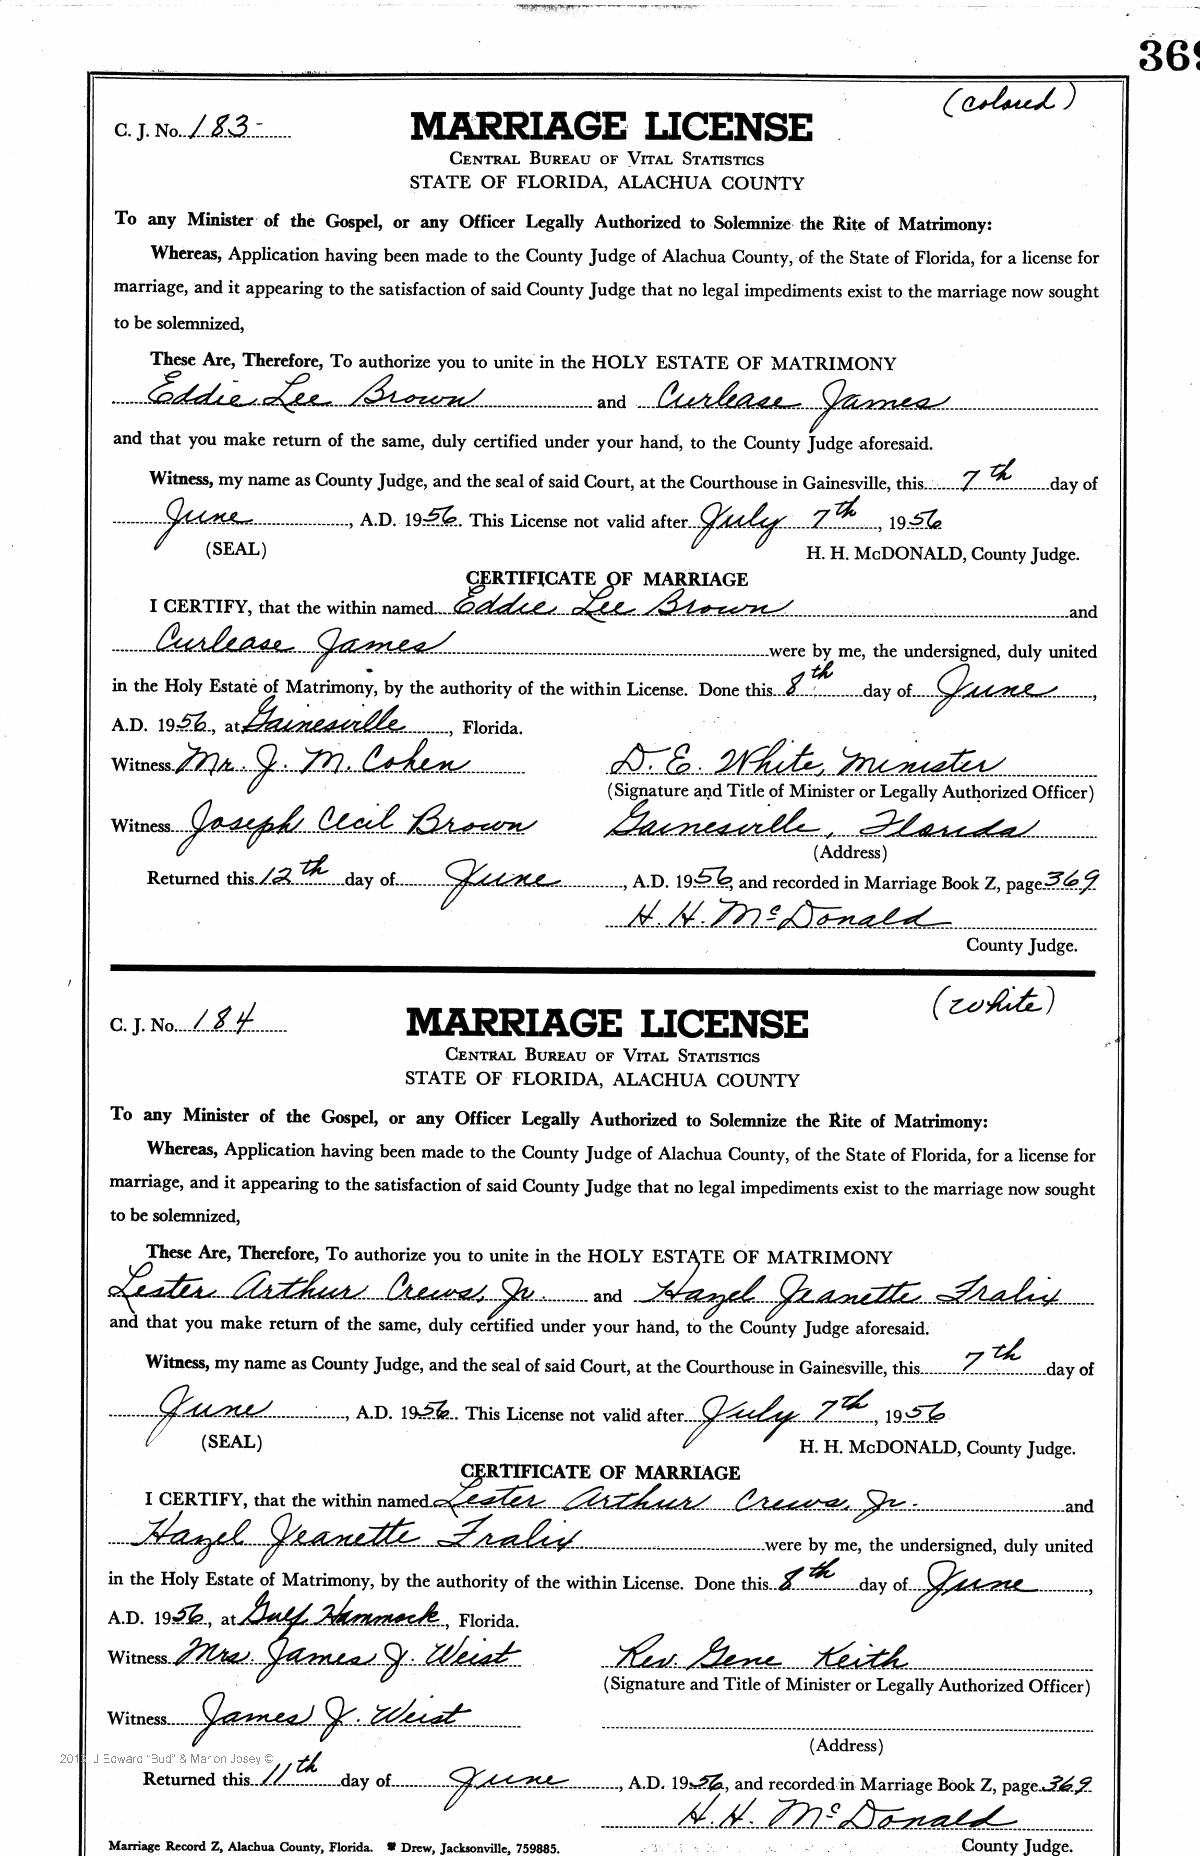 369
(colored)
C. J. No. 183-
MARRIAGE LICENSE
CENTRAL BUREAU OF VITAL STATISTICS
STATE OF FLORIDA, ALACHUA COUNTY
To any Minister of the Gospel, or any Officer Legally Authorized to Solemnize the Rite of Matrimony:
Whereas, Application having been made to the County Judge of Alachua County, of the State of Florida, for a license for
marriage, and it appearing to the satisfaction of said County Judge that no legal impediments exist to the marriage now sought
to be solemnized,
These Are, Therefore, To authorize you to unite in the HOLY ESTATE OF MATRIMONY
Eddie Lee Brown and Curlease James
and that you make return of the same, duly certified under your hand, to the County Judge aforesaid.
Witness, my name as County Judge, and the seal of said Court, at the Courthouse in Gainesville, this 7th day of
June, A.D. 1956. This License not valid after July 7th, 1956
(SEAL) H. H. McDONALD, County Judge.
CERTIFICATE OF MARRIAGE
I CERTIFY, that the within named Eddie Lee Brown and
Curlease James were by me, the undersigned, duly united
in the Holy Estate of Matrimony, by the authority of the within License. Done this 8th day of June,
A.D. 1956, at Gainesville, Florida.
Witness Mr. J. M. Cohen D. E. White, Minister
(Signature and Title of Minister or Legally Authorized Officer)
Witness Joseph Cecil Brown Gainesville, Florida
(Address)
Returned this 12th day of June, A.D. 1956, and recorded in Marriage Book Z, page 369
H. H. McDonald
County Judge.
(white)
C. J. No. 184
MARRIAGE LICENSE
CENTRAL BUREAU OF VITAL STATISTICS
STATE OF FLORIDA, ALACHUA COUNTY
To any Minister of the Gospel, or any Officer Legally Authorized to Solemnize the Rite of Matrimony:
Whereas, Application having been made to the County Judge of Alachua County, of the State of Florida, for a license for
marriage, and it appearing to the satisfaction of said County Judge that no legal impediments exist to the marriage now sought
to be solemnized,
These Are, Therefore, To authorize you to unite in the HOLY ESTATE OF MATRIMONY
Lester Arthur Crews, Jr. and Hazel Jeanette Fralix
and that you make return of the same, duly certified under your hand, to the County Judge aforesaid.
Witness, my name as County Judge, and the seal of said Court, at the Courthouse in Gainesville, this 7th day of
June, A.D. 1956. This License not valid after July 7th, 1956
(SEAL) H. H. McDONALD, County Judge.
CERTIFICATE OF MARRIAGE
I CERTIFY, that the within named Lester Arthur Crews, Jr. and
Hazel Jeanette Fralix were by me, the undersigned, duly united
in the Holy Estate of Matrimony, by the authority of the within License. Done this 8th day of June,
A.D. 1956, at Gulf Hammock, Florida.
Witness Mrs. James J. Weist Rev. Gene Keith
(Signature and Title of Minister or Legally Authorized Officer)
Witness James J. Weist
(Address)
J Edward "Bud" & Marion Josey ©
Returned this 11th day of June, A.D. 1956, and recorded in Marriage Book Z, page 369
H. H. McDonald
Marriage Record Z, Alachua County, Florida. Drew, Jacksonville, 759885. County Judge.